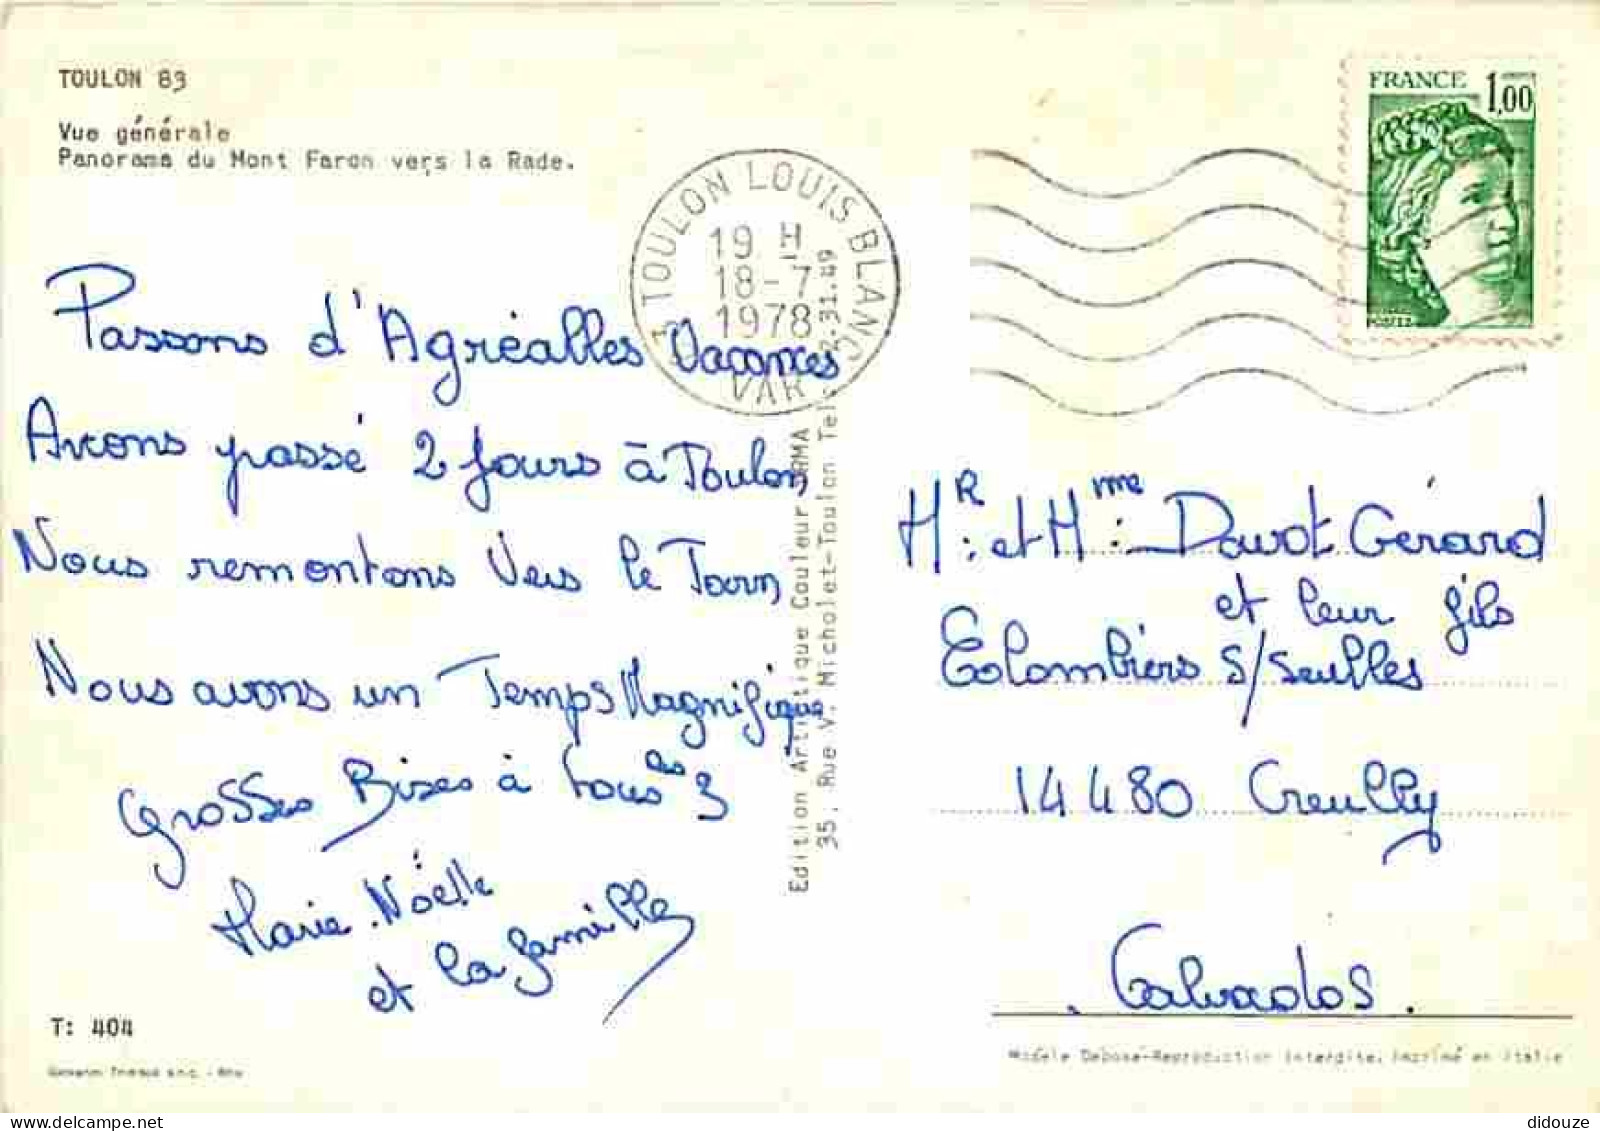 TOULON 83
Vue générale
Panorama du Mont Faron vers la Rade.
FRANCE 1,00
POSTES
TOULON LOUIS BLANC
19 H
18-7
1978
VAR
Passons d'Agréables Vacances
Avons passé 2 Jours à Toulon
Nous remontons Vers le Tarn
Nous avons un Temps Magnifique
Grosses Bises à tous les 3
Marie.Noëlle
et la famille
Edition Artistique Couleur ARMA
35, Rue V. Micholet-Toulon Tel. 92.31.49
Mr. et Mme: Davot Gérard
et leur fils
Colombiers S/Seulles
14480 Creully
. Calvados.
T: 404
Modèle Déposé-Reproduction Interdite. Imprimé en Italie
didouze